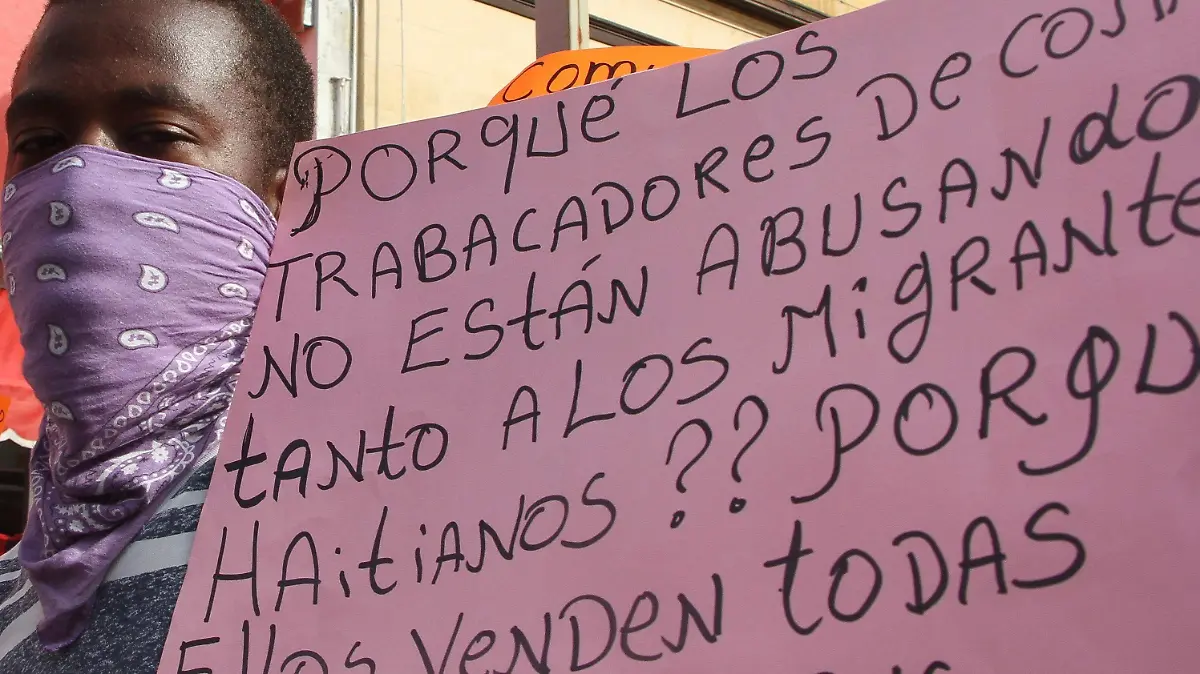 COM
PORQUÉ LOS
TRABACADORES DE COS
NO ESTÁN ABUSANDO
TANTO A LOS MIGRANTE
HAITIANOS ?? PORQU
EllOS VENDEN TODAS